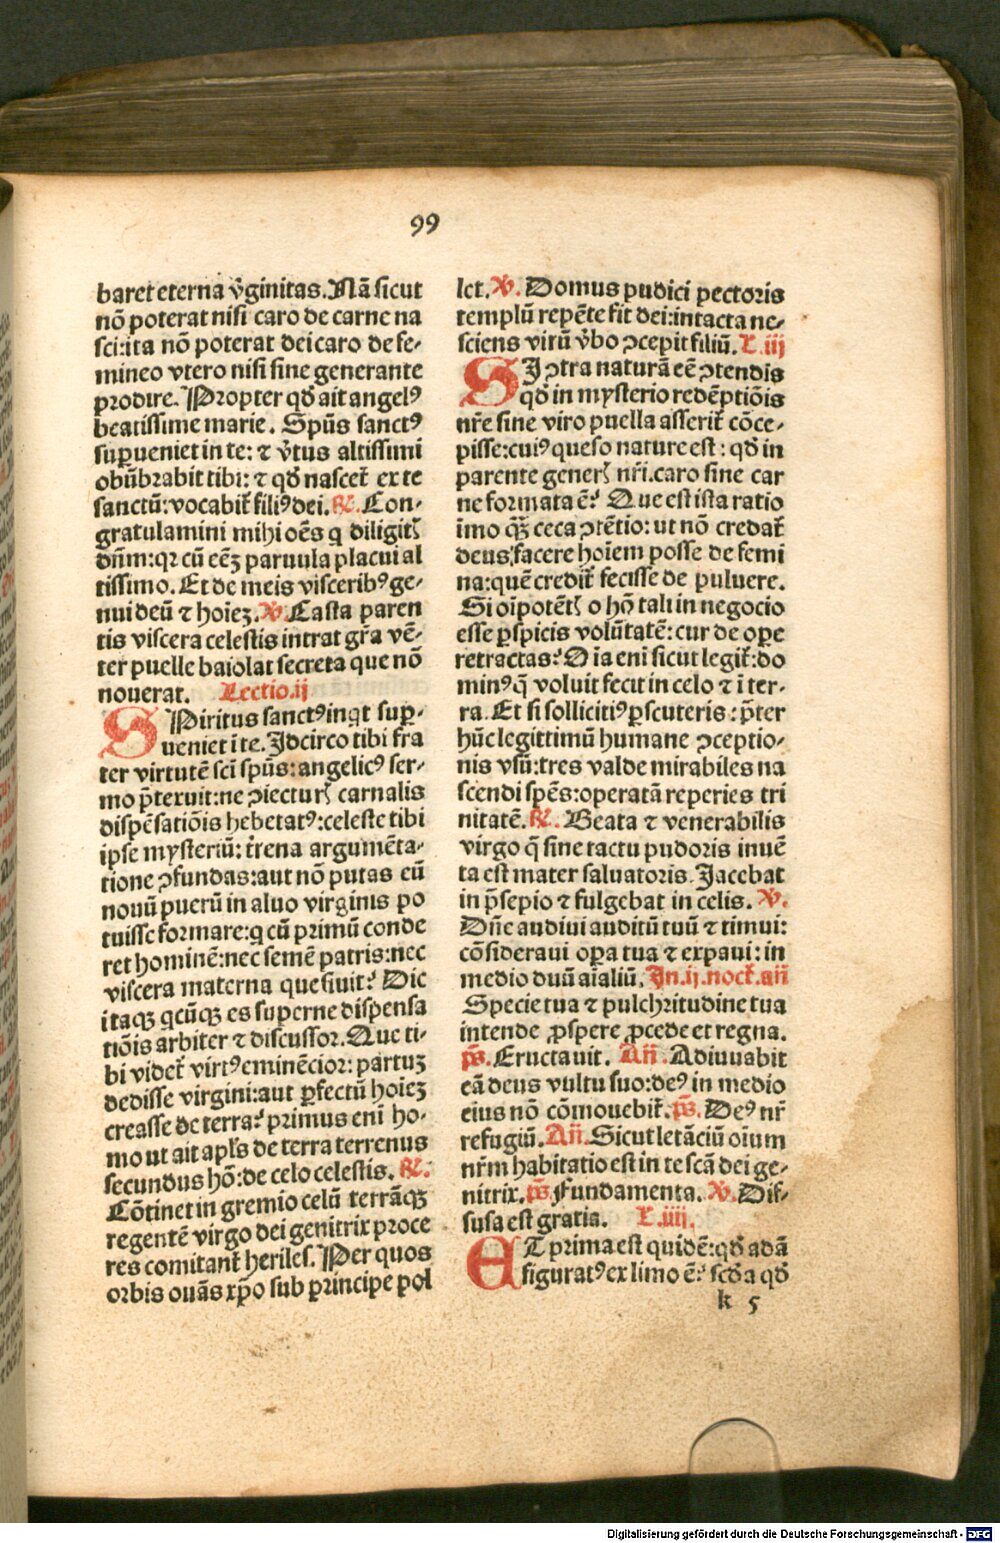 99
baret eterna v̾ginitas. Nā sicut
nō poterat nisi caro de carne na
sci: ita nō poterat dei caro de fe⸗
mineo vtero nisi sine generante
prodire. Propter qđ ait angelꝰ
beatissime marie. Spūs sanctꝰ
suꝑueniet in te: ⁊ v̾tus altissimi
obūbrabit tibi: ⁊ qđ nascet᷑ ex te
sanctū: vocabit᷑ filiꝰ dei. ℟. Con⸗
gratulamini mihi oēs q diligitꝭ
dn̄m: qꝛ cū eēꝫ paruula placui al
tissimo. Et de meis visceribꝰ ge⸗
nui deū ⁊ hoīeꝫ. ℣. Casta paren
tis viscera celestis intrat gr̄a vē⸗
ter puelle baiolat secreta que nō
nouerat. Lectio. ij
SPiritus sanctꝰ inqt suꝑ⸗
ueniet ī te. Idcirco tibi fra
ter virtutē sci̅ spūs: angelicꝰ ser⸗
mo p̄teruit: ne ↄiecturꝭ carnalis
dispēsatiōis hebetatꝰ: celeste tibi
ipse mysteriū: t̄rena argumēta⸗
tione ↄfundas: aut nō putas eū
nouū puerū in aluo virginis po
tuisse formare: q cū primū conde
ret hominē: nec semē patris: nec
viscera materna quesiuit? Dic
itaqꝫ qcūqꝫ es superne dispensa
tiōis arbiter ⁊ discussor. Que ti⸗
bi videt᷑ virtꝰ eminēcior: partuꝫ
dedisse virgini: aut ꝑfectū hoīeꝫ
creasse de terra? primus enī ho⸗
mo ut ait apl̄s de terra terrenus
secundus hō: de celo celestis. ℟.
Cōtinet in gremio celū terrāqꝫ
regentē virgo dei genitrix proce
res comitant᷑ heriles. Per quos
orbis ouās xp̄o sub principe pol
let. ℣. Domus pudici pectoris
templū repēte fit dei: intacta ne⸗
sciens virū v̾bo ↄcepit filiū. L. iij
SI ↄtra naturā eē ↄtendis
qđ in mysterio redēptiōis
nr̄e sine viro puella asserit᷑ cōce⸗
pisse: cuiꝰ queso nature est: qđ in
parente generꝭ nr̄i. caro sine car
ne formata ē? Que est ista ratio
īmo qꝫ ceca ↄtētio: ut nō credat᷑
deus facere hoīem posse de femi
na: quē credit᷑ fecisse de puluere.
Si oīpotētꝭ o hō tali in negocio
esse ꝑspicis volūtatē: cur de oꝑe
retractas? Oīa enī sicut legit᷑: do
minꝰ q̄ voluit fecit in celo ⁊ ī ter⸗
ra. Et si sollicitiꝰ ꝑscuteris: p̄ter
hūc legittimū humane ↄceptio⸗
nis vsū: tres valde mirabiles na
scendi spēs: operatā reperies tri
nitatē. ℟. Beata ⁊ venerabilis
virgo q̄ sine tactu pudoris inuē
ta est mater saluatoris. Jacebat
in p̄sepio ⁊ fulgebat in celis. ℣.
Dn̄e audiui auditū tuū ⁊ timui:
cōsideraui oꝑa tua ⁊ expaui: in
medio duū aīaliū. In. ij. noct᷑. an̄
Specie tua ⁊ pulchritudine tua
intende ꝓspere ꝓcede et regna.
ps̄. Eructauit. An̄. Adiuuabit
eā deus vultu suo: deꝰ in medio
eius nō cōmouebit᷑. ps̄. Deꝰ nr̄
refugiū. An̄. Sicut letāciū oīum
nr̄m habitatio est in te scā dei ge⸗
nitrix. ps̄. Fundamenta. ℣. Dif⸗
fusa est gratia. L. iiij.
ET prima est quidē: qđ adā
figuratꝰ ex limo ē? scđa qđ
k 5
Digitalisierung gefördert durch die Deutsche Forschungsgemeinschaft - DFG